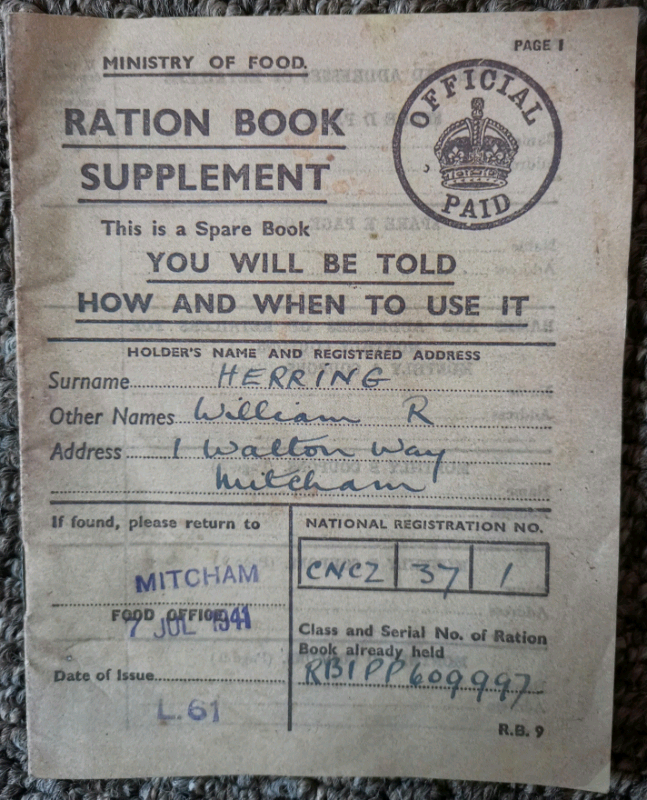 PAGE 1
MINISTRY OF FOOD.
OFFICIAL
PAID
RATION BOOK
SUPPLEMENT
This is a Spare Book
YOU WILL BE TOLD
HOW AND WHEN TO USE IT
HOLDER'S NAME AND REGISTERED ADDRESS
Surname HERRING
Other Names William R
Address 1 Walton Way
Mitcham
If found, please return to
MITCHAM
FOOD OFFICE
7 JUL 1941
Date of Issue
L.61
NATIONAL REGISTRATION NO.
CNCZ 37 1
Class and Serial No. of Ration
Book already held
RB1PP609997
R.B. 9